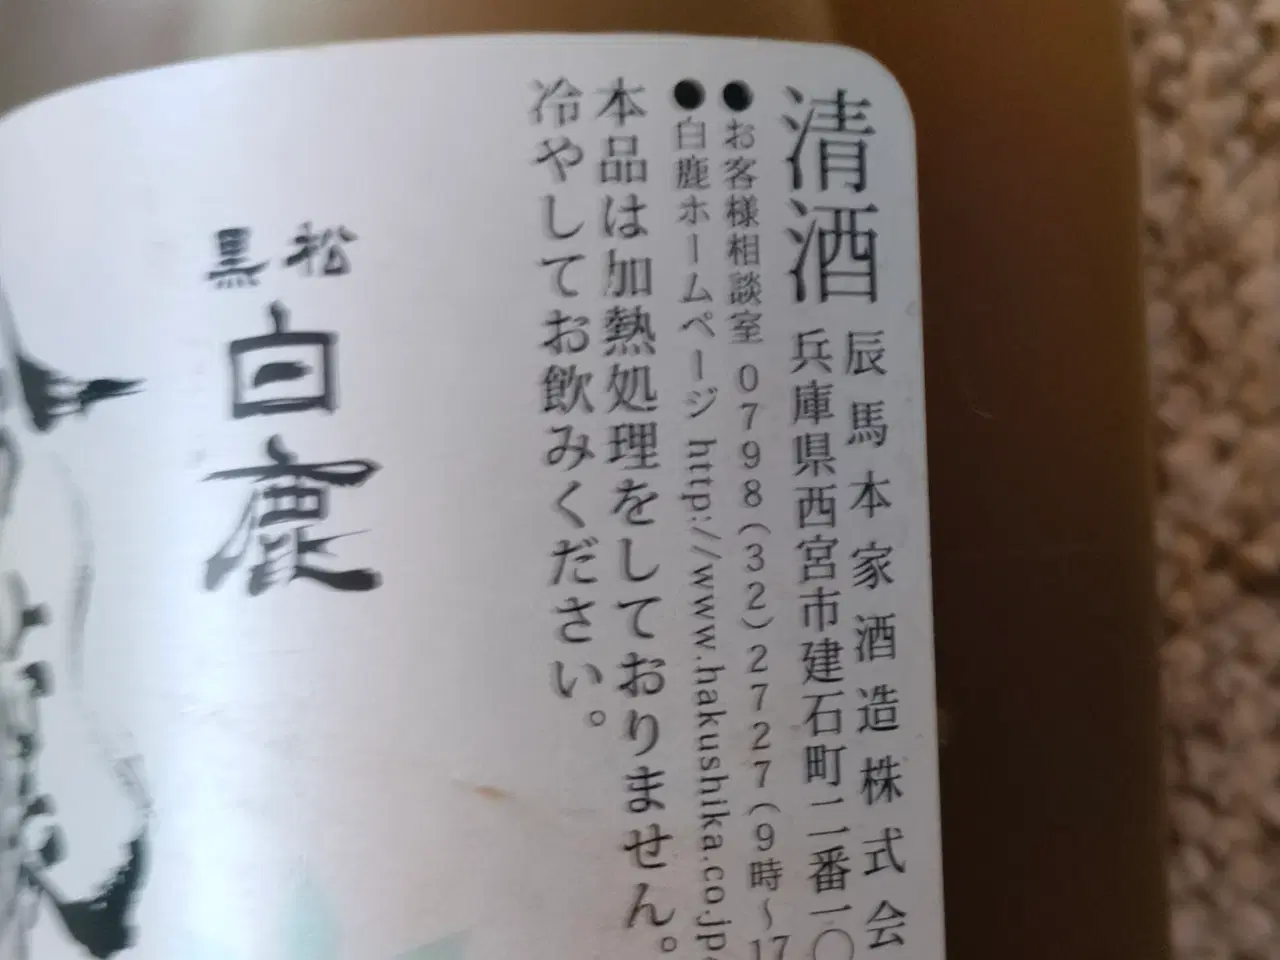 清酒
辰馬本家酒造株式会
兵庫県西宮市建石町二番一〇
●お客様相談室 0798(32)2727(9時～17
●白鹿ホームページ http://www.hakushika.co.jp
本品は加熱処理をしておりません。
冷やしてお飲みください。
黒松
白鹿